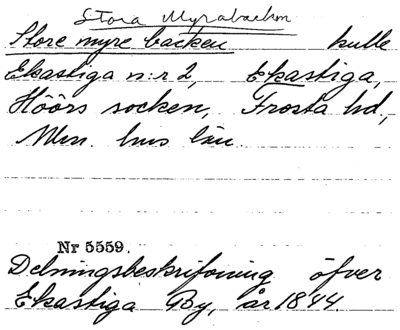 Stora Myrabacken
Store myre backen kulle
Ekastiga n:r 2, Ekastiga,
Höörs socken, Frosta hd,
Mlm. hus län
Nr 5559.
Delningsbeskrifvning öfver
Ekastiga By, år 1844.